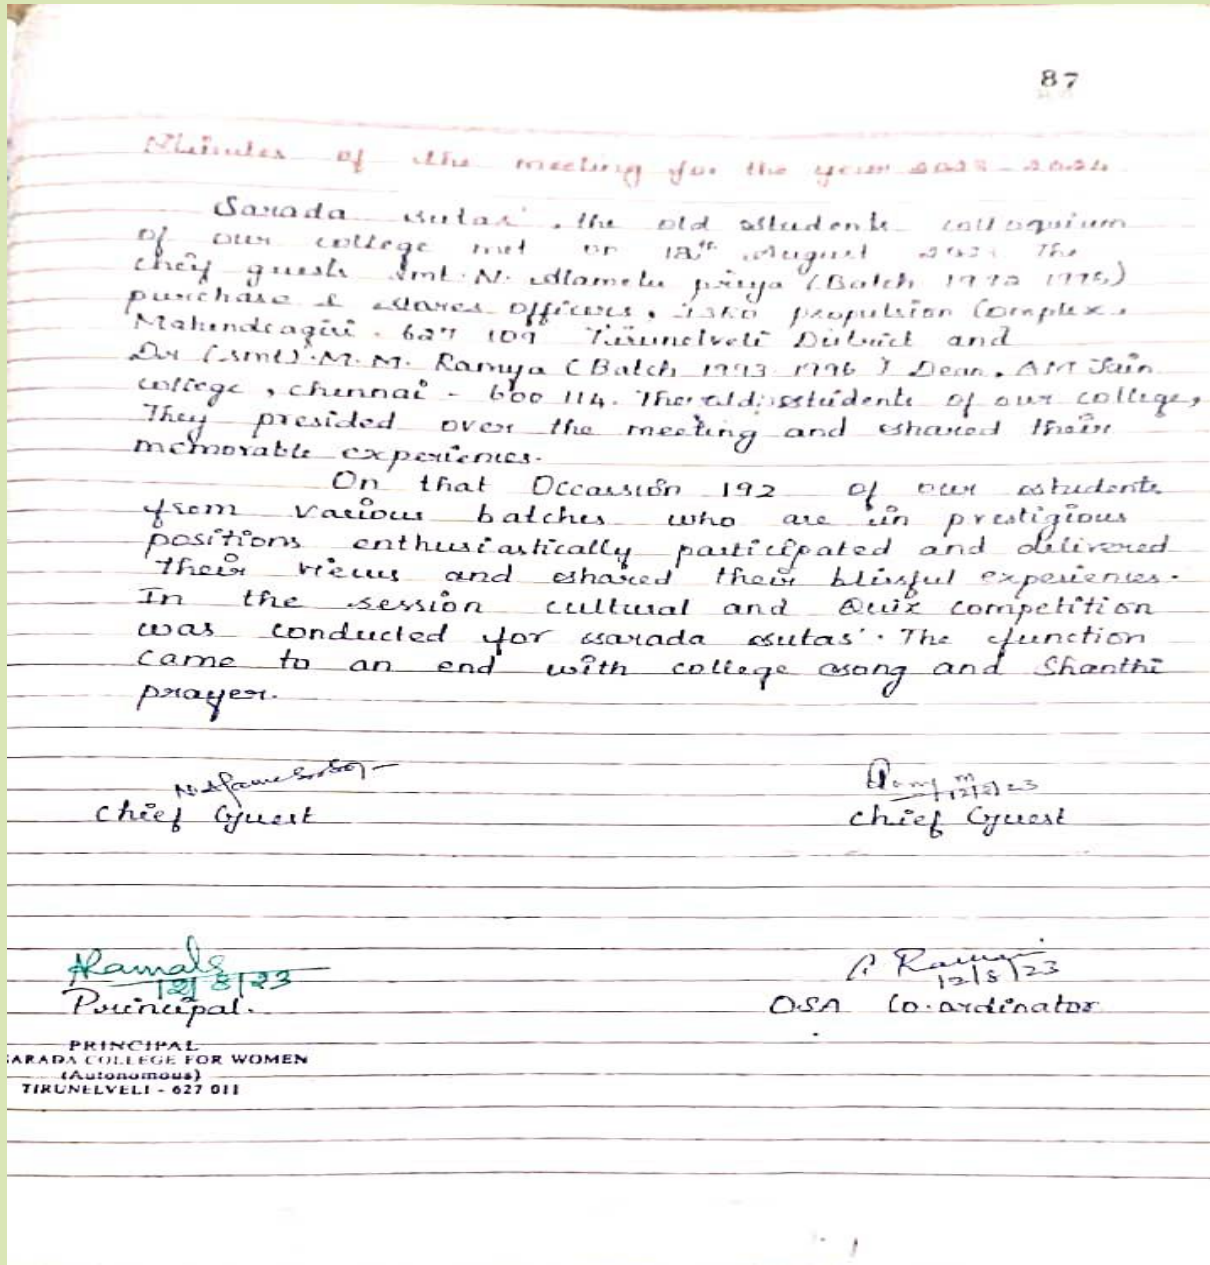 87
Minutes of the meeting for the year 2023-2024
Sarada sutas', the old students colloquium
of our college met on 12th August 2023 The
cheif guests Smt. N. Alamelu priya (Batch 1992 1995)
purchase & stores officers, ISRO propulsion Complex,
Mahendragiri. 627 109 Tirunelveli District and
Dr (smt). M. M. Ramya (Batch 1993 1996) Dean, AM Jain
college, chennai - 600 114. The old students of our college,
They presided over the meeting and shared their
memorable experiences.
On that Occassion 192 of our students
from various batches who are in prestigious
positions enthusiastically participated and delivered
their views and shared their blissful experiences.
In the session cultural and Quix competition
was conducted for sarada sutas'. The function
came to an end with college song and Shanthi
prayer.
12/8/23
Chief Guest chief Guest
12/8/23 12/8/23
Principal. OSA Co.ordinator
PRINCIPAL
ARADA COLLEGE FOR WOMEN
(Autonomous)
TIRUNELVELI - 627 011